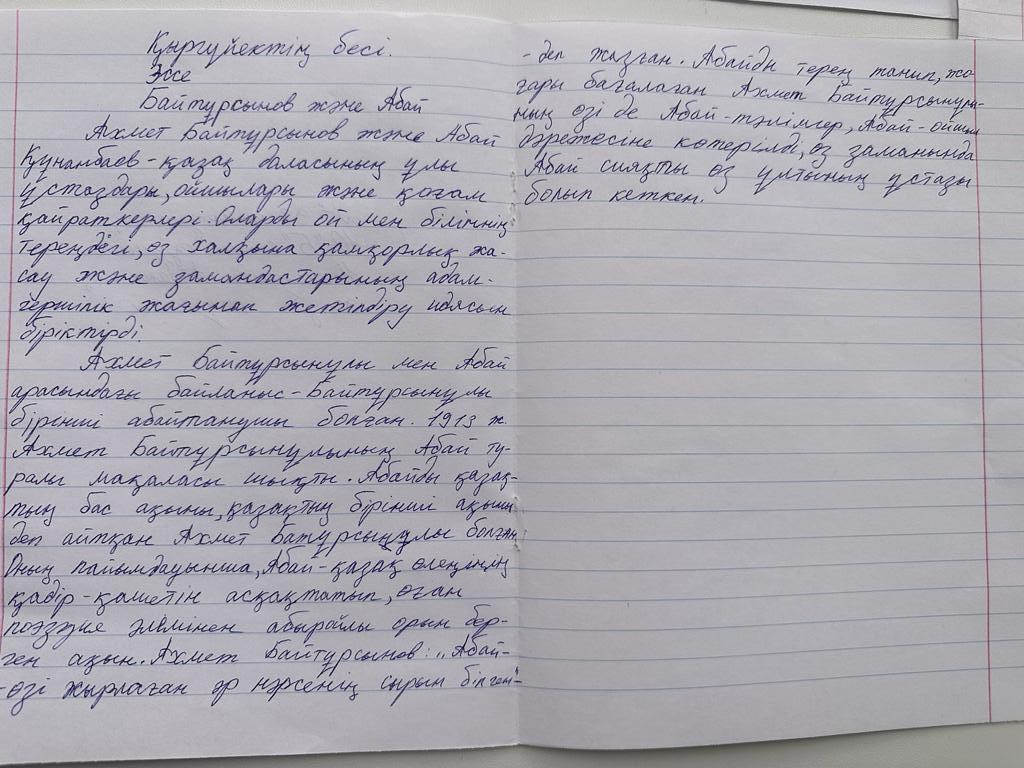 Қыргүйектің бесі.
Эссе
Байтұрсынов және Абай
Ахмет Байтұрсынов және Абай
Құнанбаев - қазақ даласының ұлы
ұстаздары, ойшылары және қоғам
қайраткерлері. Оларды ой мен білімнің
тереңдегі, өз халқына қамқорлық жа-
сау және замандастарының адам-
гершілік жағынан жетілдіру идясын
біріктірді.
Ахмет Байтұрсынұлы мен Абай
арасындағы байланыс - Байтұрсынұлы
бірінші абайтанушы болған. 1913 ж.
Ахмет Байтұрсынұлының Абай ту-
ралы мақаласы шықты. Абайды қазақ-
тың бас ақыны, қазақтың бірінші ақыны
деп айтқан Ахмет Батұрсынұлы болған.
Оның пайымдауынша, Абай - қазақ өлеңінің
қадір-қасиетін асқақтатып, оған
поэзия әлемінен абыройлы орын бер-
ген ақын. Ахмет Байтұрсынов: "Абай-
- өзі жырлаған әр нәрсенің сырын білген"-
- деп жазған. Абайды терең танып, жо-
ғары бағалаған Ахмет Байтұрсынұлы-
ның өзі де Абай-тәлімгер, Абай-ойшыл
дәрежесіне көтерілді, өз заманында
Абай сияқты өз ұлтының ұстазы
болып кеткен.